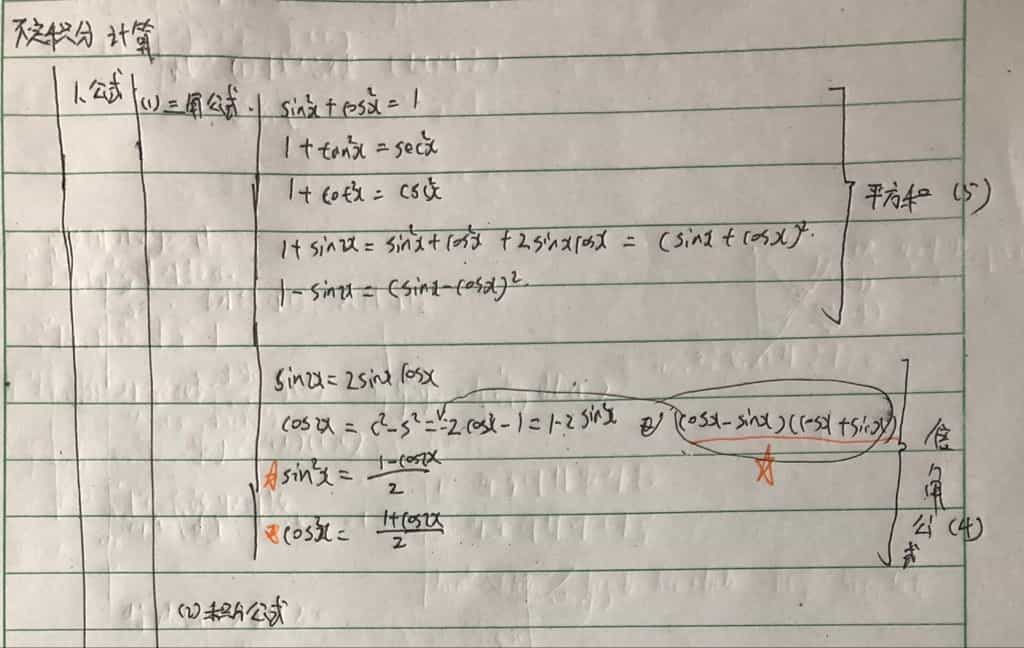 不定积分 计算
1、公式 (1) 三角公式.
sin²x + cos²x = 1
1 + tan²x = sec²x
1 + cot²x = csc²x
1 + sin2x = sin²x + cos²x + 2sinxcosx = (sinx + cosx)².
1 - sin2x = (sinx - cosx)².
平方和 (5)
sin2x = 2sinx cosx
cos2x = c² - s² = 2cos²x - 1 = 1 - 2sin²x (cosx - sinx)(cosx + sinx)
sin²x = (1-cos2x)/2
cos²x = (1+cos2x)/2
倍角公式 (4)
(2) 积分公式